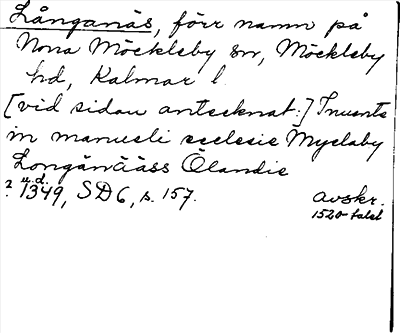 Långanäs, förr namn på
Norra Möckleby sn, Möckleby
hd, Kalmar l.
[vid sidan antecknat:] Inuenta
in manuali ecclesie Myclaby
Longänääss Ölandie
? u.d. 1349, SD 6, s. 157. avskr.
1520-talet